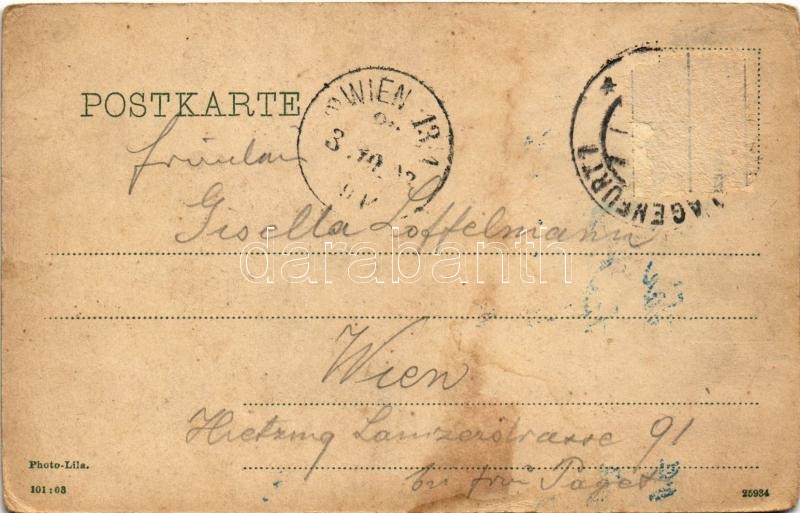 POSTKARTE
WIEN 13/1
3
KLAGENFURT 1
Fräulein
Gisella Löffelmann
darabanth
Wien
Hietzing Lainzerstrasse 91
bei Frau Paget
Photo-Lila.
101:03
25934